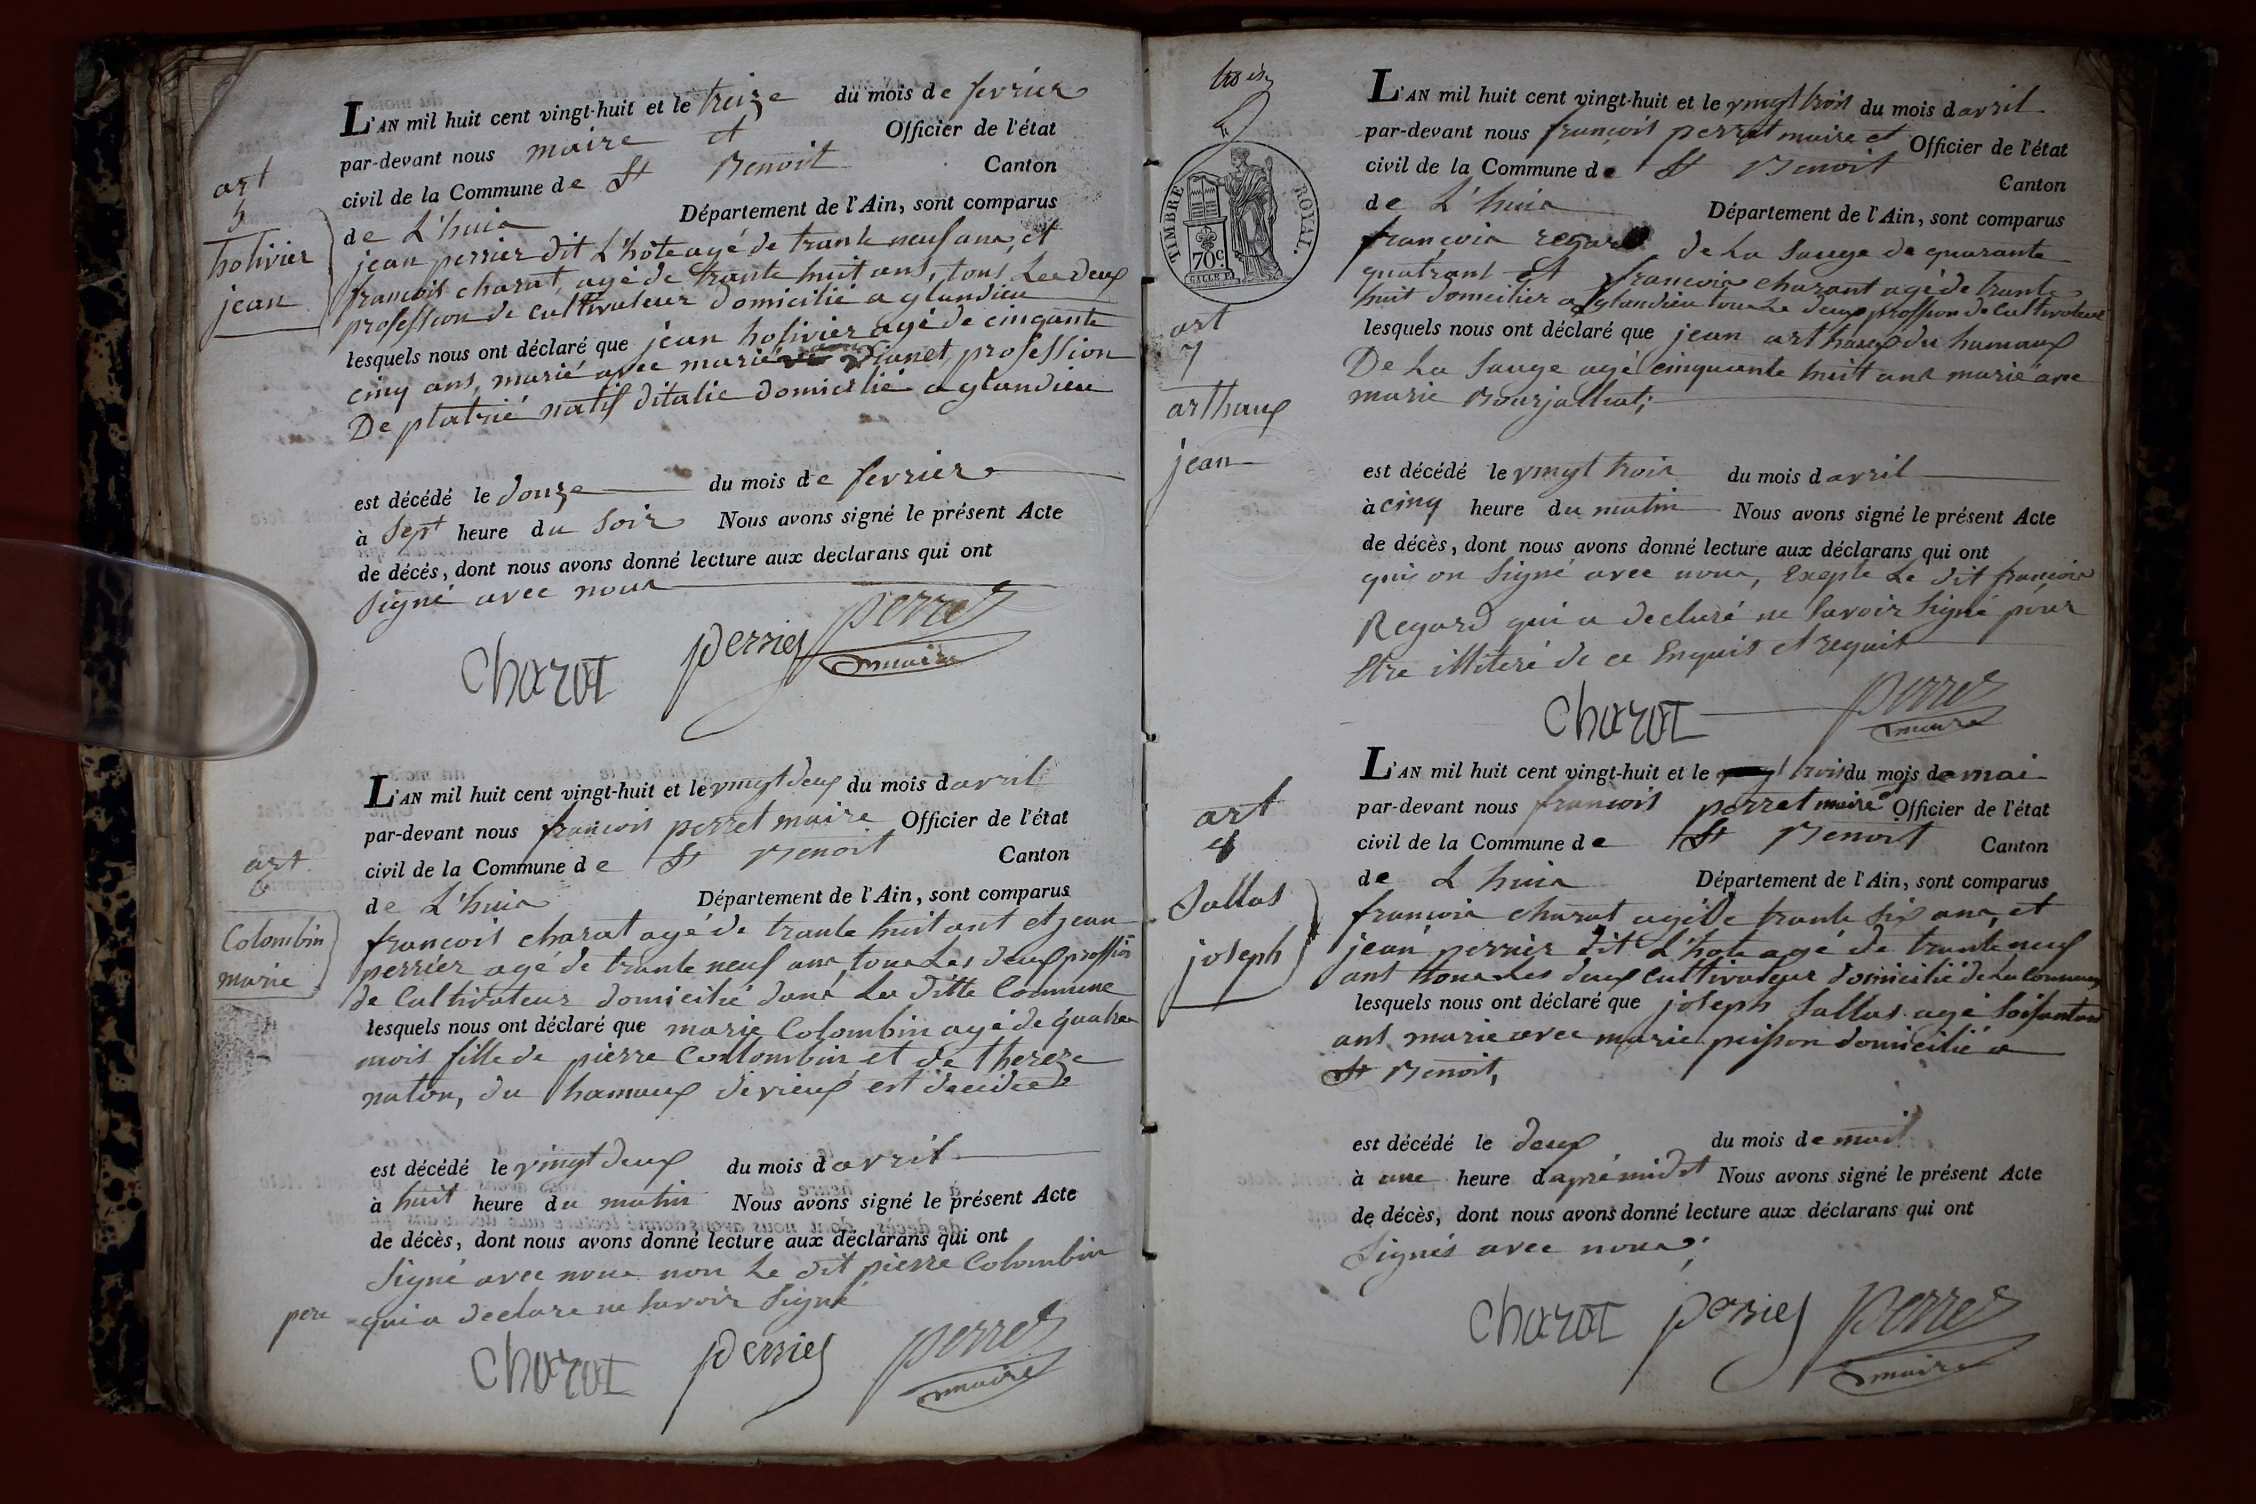 L'AN mil huit cent vingt-huit et le treize du mois de fevrier
par-devant nous maire et Officier de l'état
civil de la Commune de St Benoit Canton
de L'huis Département de l'Ain, sont comparus
art
5
holivier
jean
jean perrier dit L'hote agé de trante neuf ans, et
francois charat, agé de trante huit ans, tous Les deux
profession de cultivateur domicilié a glandieu
lesquels nous ont déclaré que jean holivier agé de cinqante
cinq ans, marié avec marie janet, profession
De platrié natif ditalie domicilié a glandieu
est décédé le douze du mois de fevrier
à sept heure du soir Nous avons signé le présent Acte
de décès, dont nous avons donné lecture aux declarans qui ont
signé avec nous
Charat perrier perret
maire
L'AN mil huit cent vingt-huit et le vingt deux du mois davril
par-devant nous francois perret maire Officier de l'état
civil de la Commune de St Benoit Canton
de L'huis Département de l'Ain, sont comparus
art
6
Colombin
marie
francois charat agé de trante huit ant et jean
perrier agé de trante neuf ans, tous Les deux proffion
de Cultivateur domicilié dans La ditte Commune
lesquels nous ont déclaré que marie Colombin agé de quatre
mois fille de pierre Collombin et de thereze
naton, du hamaux divieux est decidee
est décédé le vingt deux du mois davril
à huit heure du matin Nous avons signé le présent Acte
de décès, dont nous avons donné lecture aux déclarans qui ont
Signé avec nous non Le dit pierre Colombin
pere qui a declare ne savoir signé
Charat perrier perret
maire
TIMBRE ROYAL.
70c
L'AN mil huit cent vingt-huit et le vingt trois du mois davril
par-devant nous francois perret maire et Officier de l'état
civil de la Commune de St Benoit Canton
de L'huis Département de l'Ain, sont comparus
art
7
arthaux
jean
francois regard de La Sauge de quarante
quatrant et francois charant agé de trante
huit domicilier a glandieu tous Le deux proffion de Cultivateur
lesquels nous ont déclaré que jean arthaux du hamaux
De La Sauge agé cinquante huit ans marié avec
marie Bourjalliat;
est décédé le vingt trois du mois davril
à cinq heure du matin Nous avons signé le présent Acte
de décès, dont nous avons donné lecture aux déclarans qui ont
qui on signé avec nous, Exepte Le dit francois
Regard qui a declaré ne savoir signé pour
Etre illiteré de ce Enquis et requit
Charat perret
maire
L'AN mil huit cent vingt-huit et le trois du mois de mai
par-devant nous francois perret maire et Officier de l'état
civil de la Commune de St Benoit Canton
de L'huis Département de l'Ain, sont comparus
art
Sallas
joseph
francois charat agé De trante six ans, et
jean perrier dit L'hote agé de trante neuf
ans tous Les deux cultivateur domicilié de La Commune
lesquels nous ont déclaré que joseph Sallas agé
ans marie avec marie peisson domicilié a
St Benoit,
est décédé le deux du mois de mai
à une heure daprémidit Nous avons signé le présent Acte
de décès, dont nous avons donné lecture aux déclarans qui ont
Signés avec nous;
Charat perrier perret
maire